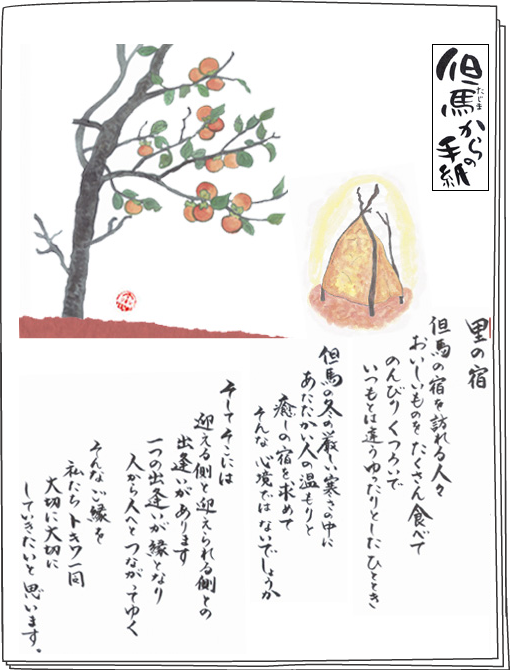 但馬からの手紙
たじま
里の宿
但馬の宿を訪れる人々
おいしいものをたくさん食べて
のんびりくつろいで
いつもとは違うゆったりとしたひととき
但馬の冬の厳しい寒さの中に
あたたかい人の温もりと
癒しの宿を求めて
そんな心境ではないでしょうか
そしてそこには
迎える側と迎えられる側との
出逢いがあります
一つの出逢いが縁となり
人から人へとつながってゆく
そんなご縁を
私たちトキワ一同
大切に大切に
していきたいと思います。